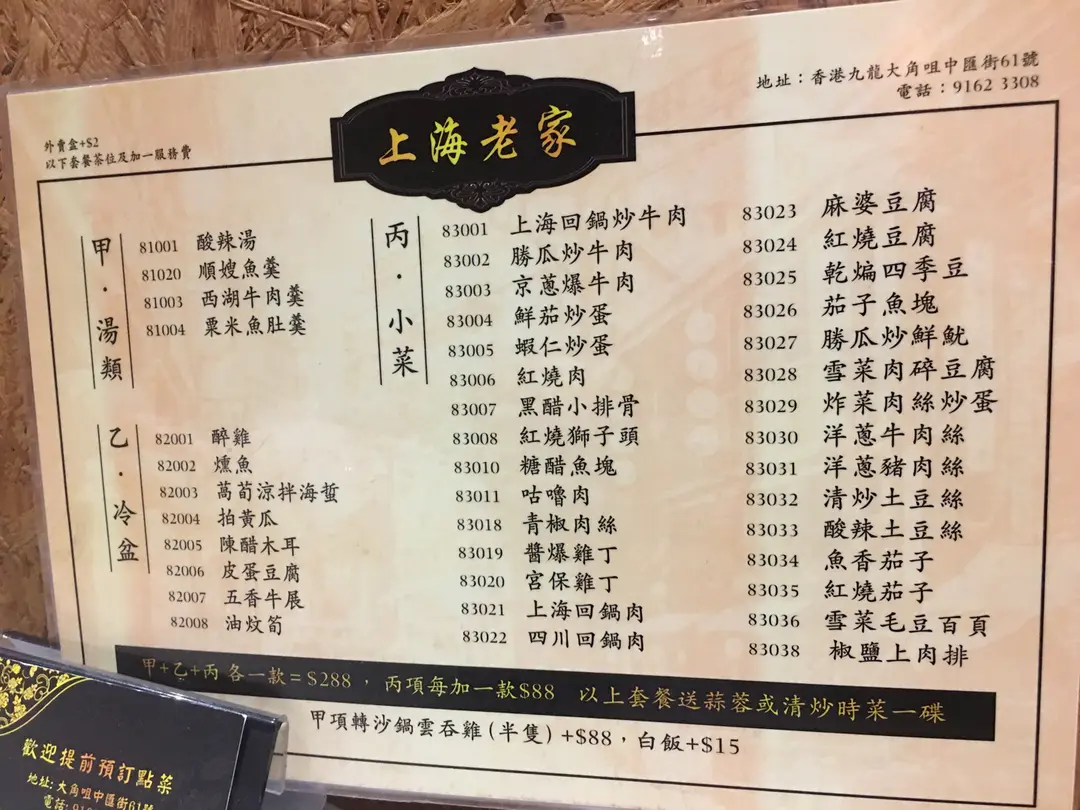 地址：香港九龍大角咀中匯街61號
電話：9162 3308
外賣盒+$2
以下套餐茶位及加一服務費
上海老家
甲·湯類
81001 酸辣湯
81020 順嫂魚羹
81003 西湖牛肉羹
81004 粟米魚肚羹
乙·冷盆
82001 醉雞
82002 燻魚
82003 萵荀涼拌海蜇
82004 拍黃瓜
82005 陳醋木耳
82006 皮蛋豆腐
82007 五香牛展
82008 油炆筍
丙·小菜
83001 上海回鍋炒牛肉
83002 勝瓜炒牛肉
83003 京蔥爆牛肉
83004 鮮茄炒蛋
83005 蝦仁炒蛋
83006 紅燒肉
83007 黑醋小排骨
83008 紅燒獅子頭
83010 糖醋魚塊
83011 咕嚕肉
83018 青椒肉絲
83019 醬爆雞丁
83020 宮保雞丁
83021 上海回鍋肉
83022 四川回鍋肉
83023 麻婆豆腐
83024 紅燒豆腐
83025 乾煸四季豆
83026 茄子魚塊
83027 勝瓜炒鮮魷
83028 雪菜肉碎豆腐
83029 炸菜肉絲炒蛋
83030 洋蔥牛肉絲
83031 洋蔥豬肉絲
83032 清炒土豆絲
83033 酸辣土豆絲
83034 魚香茄子
83035 紅燒茄子
83036 雪菜毛豆百頁
83038 椒鹽上肉排
甲+乙+丙 各一款=$288，丙項每加一款$88 以上套餐送蒜蓉或清炒時菜一碟
甲項轉沙鍋雲吞雞(半隻)+$88，白飯+$15
歡迎提前預訂點菜
地址:大角咀中匯街61號
電話:916